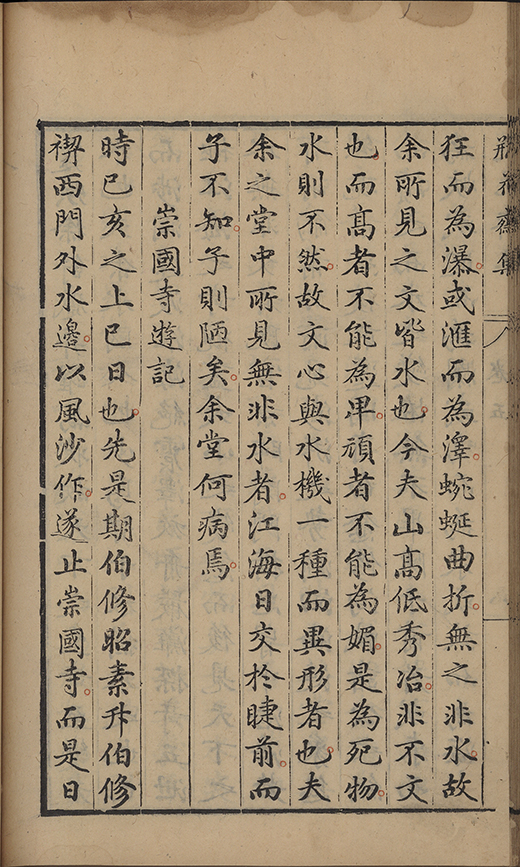 瓶花齋集
卷五
狂而為瀑或滙而為澤蜿蜒曲折無之非水故
余所見之文皆水也今夫山髙低秀冶非不文
也而髙者不能為卑頑者不能為媚是為死物
水則不然故文心與水機一種而異形者也夫
余之堂中所見無非水者江海日交於睫前而
子不知子則陋矣余堂何病焉
崇國寺遊記
時已亥之上巳日也先是期伯修昭素升伯修
禊西門外水邊以風沙作遂止崇國寺而是日